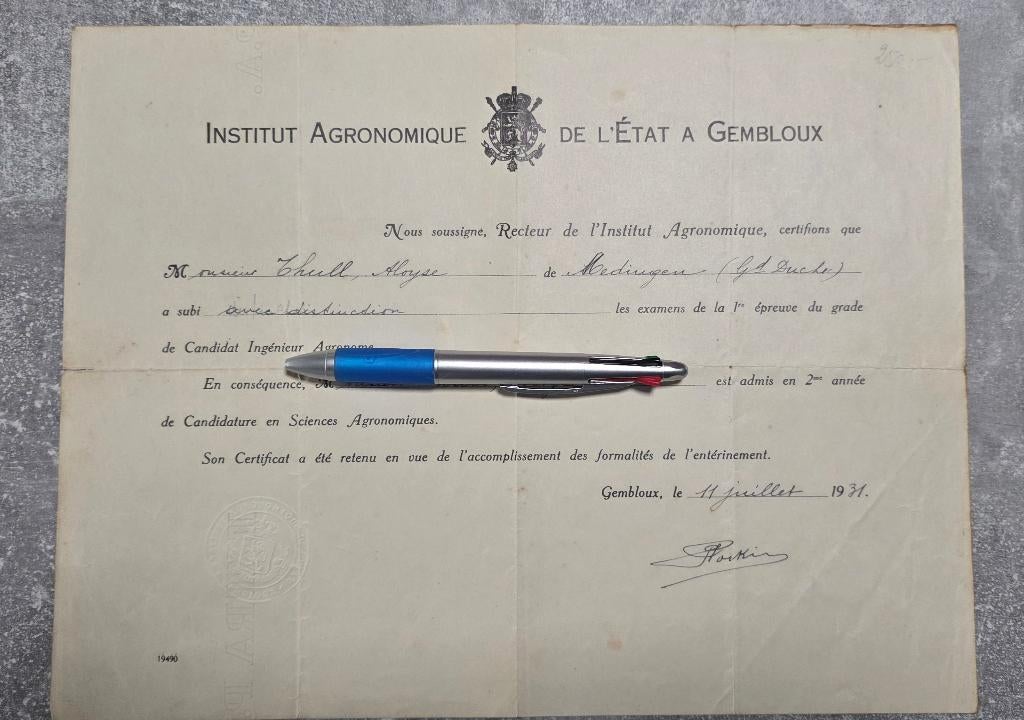 INSTITUT AGRONOMIQUE DE L'ÉTAT A GEMBLOUX
Nous soussigné, Recteur de l'Institut Agronomique, certifions que
Monsieur Thull, Aloyse de Medingen (Gd Duché)
a subi avec distinction les examens de la 1re épreuve du grade
de Candidat Ingénieur Agronome
En conséquence, M est admis en 2me année
de Candidature en Sciences Agronomiques.
Son Certificat a été retenu en vue de l'accomplissement des formalités de l'entérinement.
Gembloux, le 11 juillet 1931.
19490